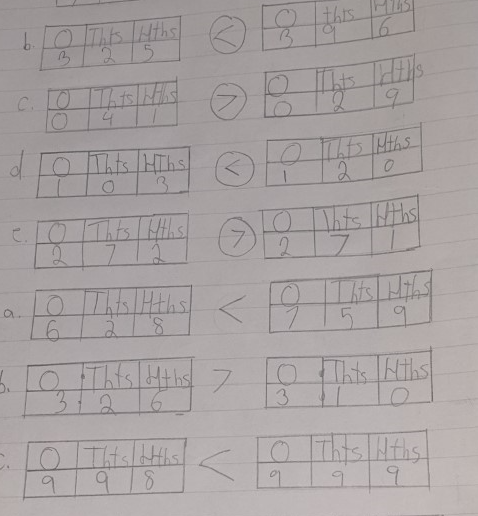 b. O Thts Hths < O thts Hths
3 2 5 3 9 6
c. O Thts Hths > O Thts Hths
0 4 1 0 2 9
d O Thts HThs < O Thts Hths
1 0 3 1 2 0
e. O Thts Hths > O Thts Hths
2 7 2 2 7 1
a. O Thts Hths < O Thts Hths
6 2 8 7 5 9
b. O Thts Hths > O Thts Hths
3 . 2 6 3 . 1 0
c. O Thts Hths < O Thts Hths
9 9 8 9 9 9